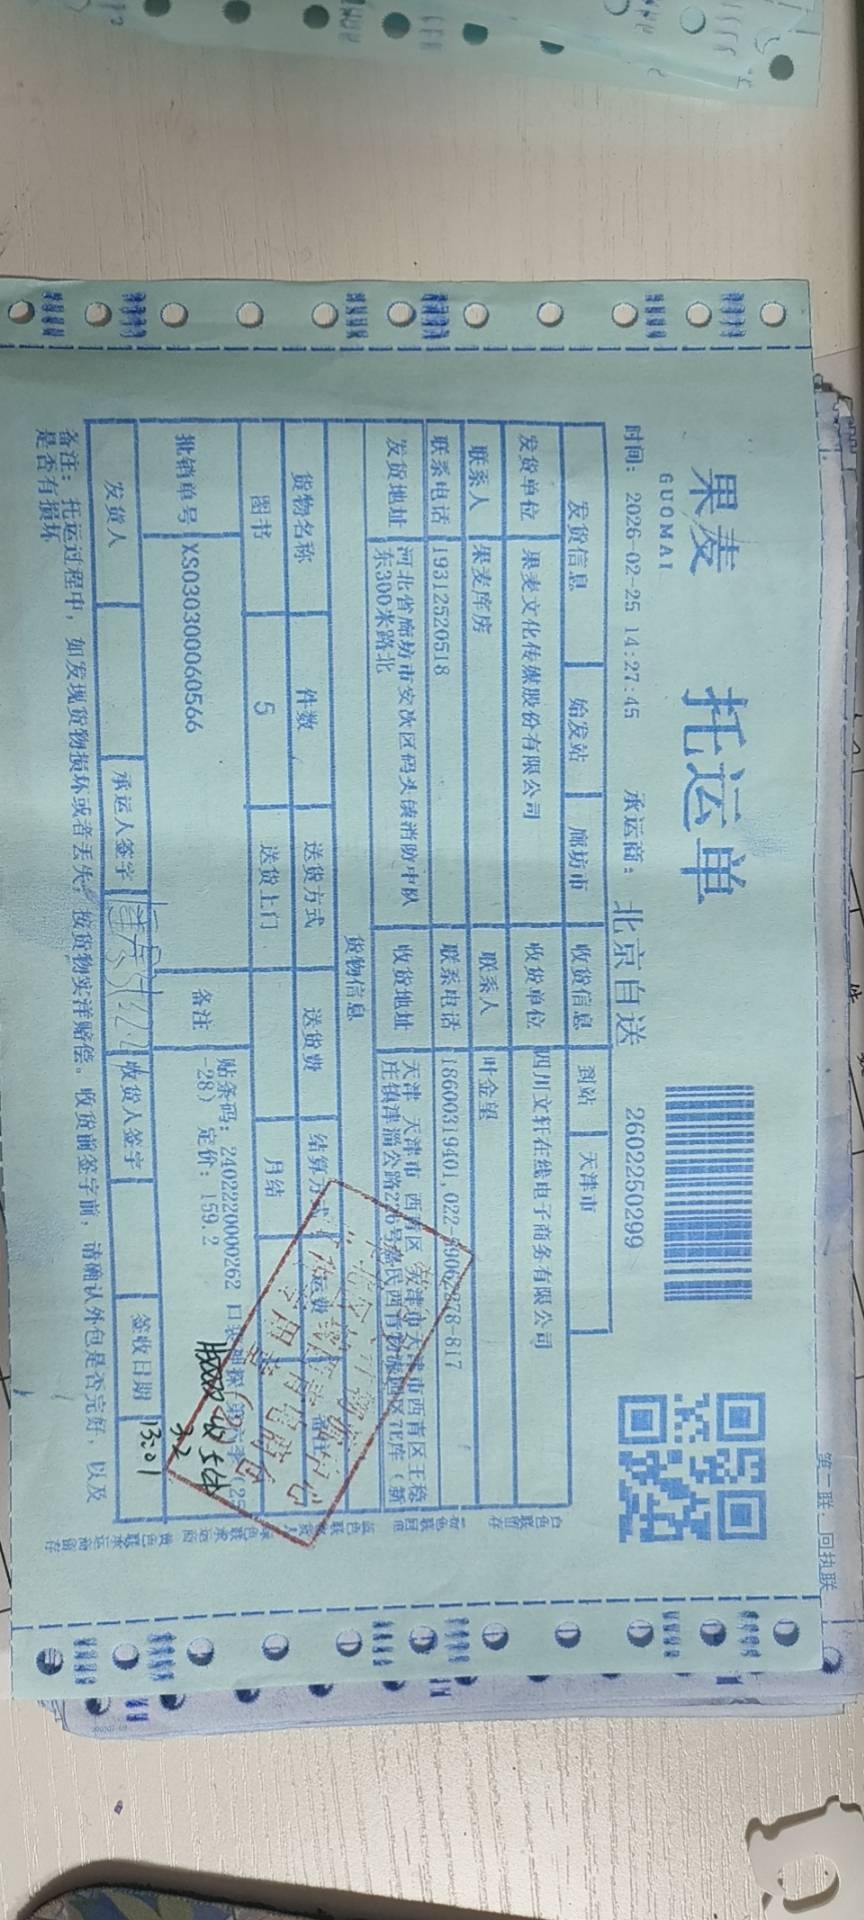 第二联：回执联
果麦
GUOMAI
托运单
时间：2026-02-25 14:27:45 承运商：北京自送 2602250299
发货信息 始发站 廊坊市 收货信息 到站 天津市
发货单位 果麦文化传媒股份有限公司 收货单位 四川文轩在线电子商务有限公司
联系人 果麦库房 联系人 叶金望
联系电话 19312520518 联系电话 18600319401,022-
发货地址 河北省廊坊市安次区码头镇消防中队
东300米路北
收货地址 天津 天津市 西青区 天津市西青区王稳
庄镇津淄公路226号
货物信息
货物名称 件数 送货方式 送货费 结算方式 运费 备注
图书 5 送货上门 月结
批销单号 XS030300060566 备注 贴条码：2402220000262 口袋神探（第六季）（25
-28） 定价：159.2
发货人 承运人签字 收货人签字 签收日期
3.2
13:01
备注：托运过程中，如发现货物损坏或者丢失，按货物实洋赔偿。收货前签字前，请确认外包是否完好，以及
是否有损坏